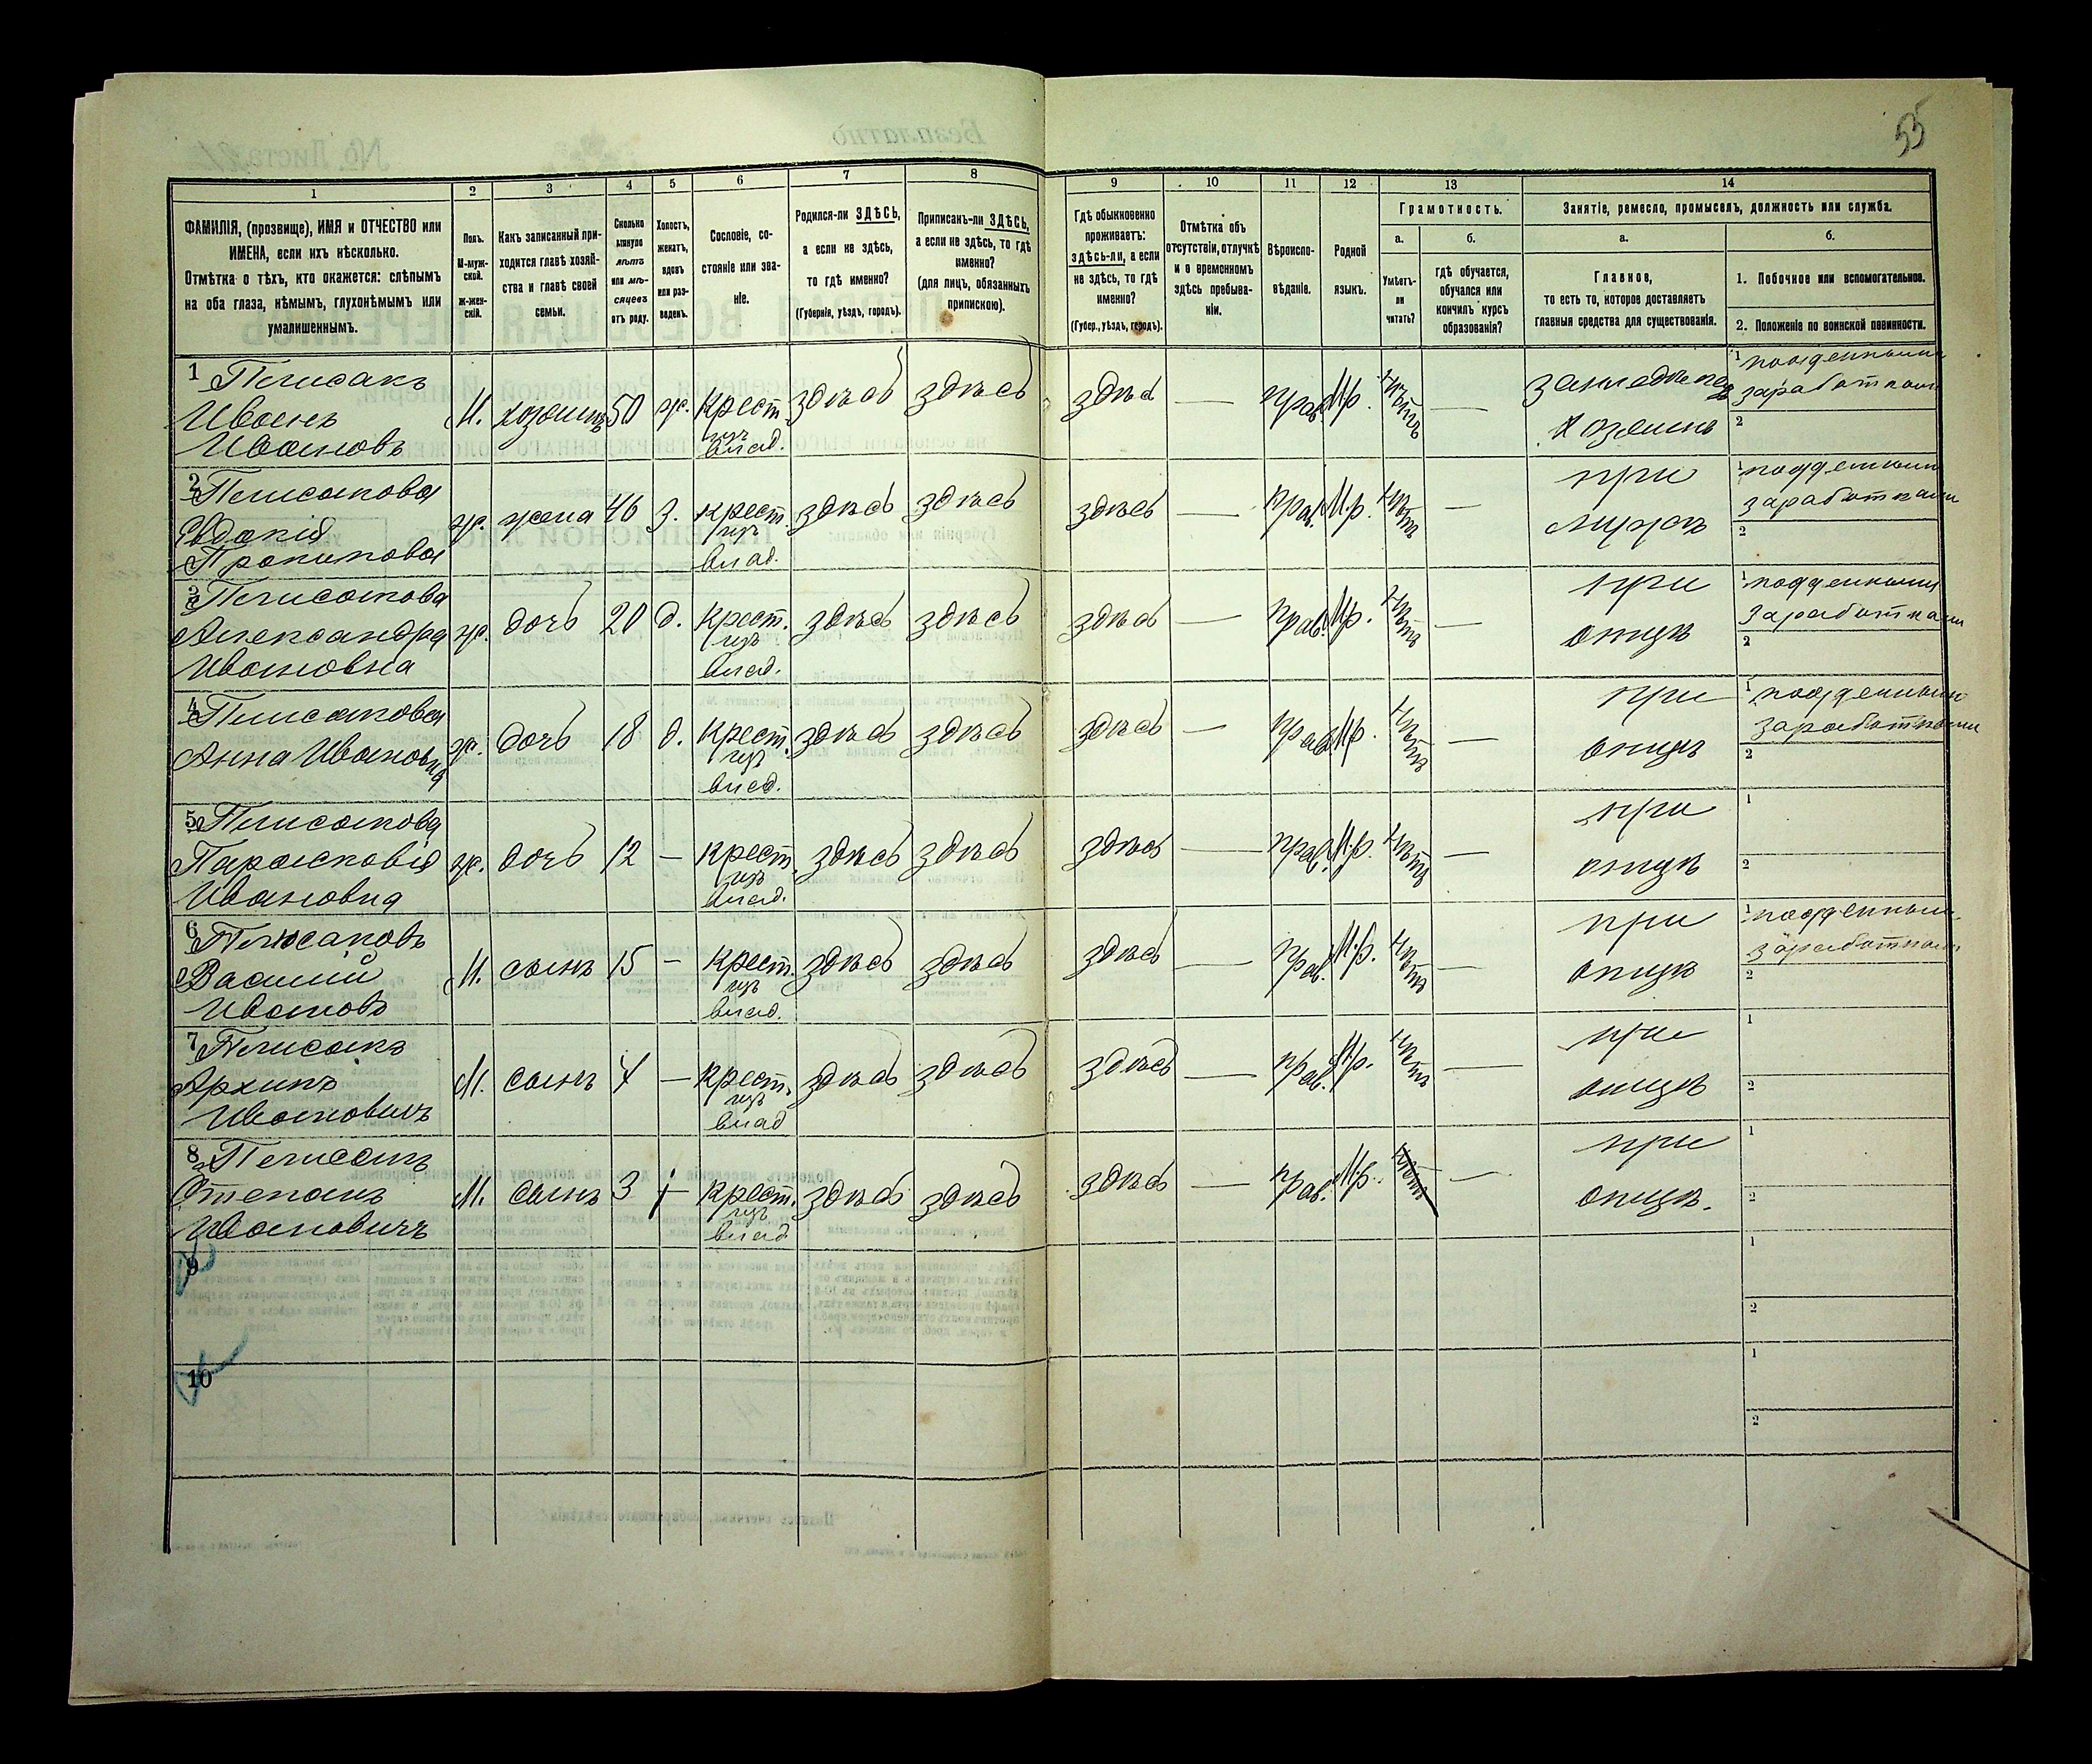 55
1 2 3 4 5 6 7 8 9 10 11 12 13 14
ФАМИЛІЯ, (прозвище), ИМЯ и ОТЧЕСТВО или
ИМЕНА, если ихъ нѣсколько.
Отмѣтка о тѣхъ, кто окажется: слѣпымъ
на оба глаза, нѣмымъ, глухонѣмымъ или
умалишеннымъ.
Полъ.
М-муж-
ской.
Ж-жен-
скій.
Какъ записанный при-
ходится главѣ хозяй-
ства и главѣ своей
семьи.
Сколько
минуло
лѣтъ
или мѣ-
сяцевъ
отъ роду.
Холостъ,
женатъ,
вдовъ
или раз-
веденъ.
Сословіе, со-
стояніе или зва-
ніе.
Родился-ли ЗДѢСЬ,
а если не здѣсь,
то гдѣ именно?
(Губернія, уѣздъ, городъ).
Приписанъ-ли ЗДѢСЬ,
а если не здѣсь, то гдѣ
именно?
(для лицъ, обязанныхъ
припискою).
Гдѣ обыкновенно
проживаетъ:
здѣсь-ли, а если
не здѣсь, то гдѣ
именно?
(Губер., уѣздъ, городъ).
Отмѣтка объ
отсутствіи, отлучкѣ
и о временномъ
здѣсь пребыва-
ніи.
Вѣроиспо-
вѣданіе.
Родной
языкъ.
Грамотность.
а.
Умѣетъ-
ли
читать?
б.
гдѣ обучается,
обучался или
кончилъ курсъ
образованія?
Занятіе, ремесло, промыселъ, должность или служба.
а.
Главное,
то есть то, которое доставляетъ
главныя средства для существованія.
б.
1. Побочное или вспомогательное.
2. Положеніе по воинской повинности.
1
Иванъ
Ивановъ
М. хозяинъ 50 ж. Крест. изъ влад. здѣсь здѣсь здѣсь — прав. М.р. нѣтъ — земледѣлецъ хозяинъ
1 поденными заработками
2
2
Евдокія
ж. жена 46 з. Крест. изъ влад. здѣсь здѣсь здѣсь — прав. М.р. нѣтъ при мужѣ
1 поденными заработками
2
3
Александра
Ивановна
ж. дочь 20 д. Крест. изъ влад. здѣсь здѣсь здѣсь — прав. М.р. нѣтъ — при отцѣ
1 поденными заработками
2
4
Анна Ивановна
ж. дочь 18 д. Крест. изъ влад. здѣсь здѣсь здѣсь — прав. М.р. нѣтъ — при отцѣ
1 поденными заработками
2
5
Парасковія
Ивановна
ж. дочь 12 — Крест. изъ влад. здѣсь здѣсь здѣсь — прав. М.р. нѣтъ — при отцѣ
1
2
6
Василій
Ивановъ
М. сынъ 15 — Крест. изъ влад. здѣсь здѣсь здѣсь — прав. М.р. нѣтъ — при отцѣ
1 поденными заработками
2
7
Архипъ
Ивановичъ
М. сынъ — Крест. изъ влад здѣсь здѣсь здѣсь — прав. М.р. нѣтъ — при отцѣ
1
2
8
Степанъ
Ивановичъ
М. сынъ 3 — Крест. изъ влад здѣсь здѣсь здѣсь — прав. М.р. нѣтъ — при отцѣ.
1
2
9
1
2
10
1
2